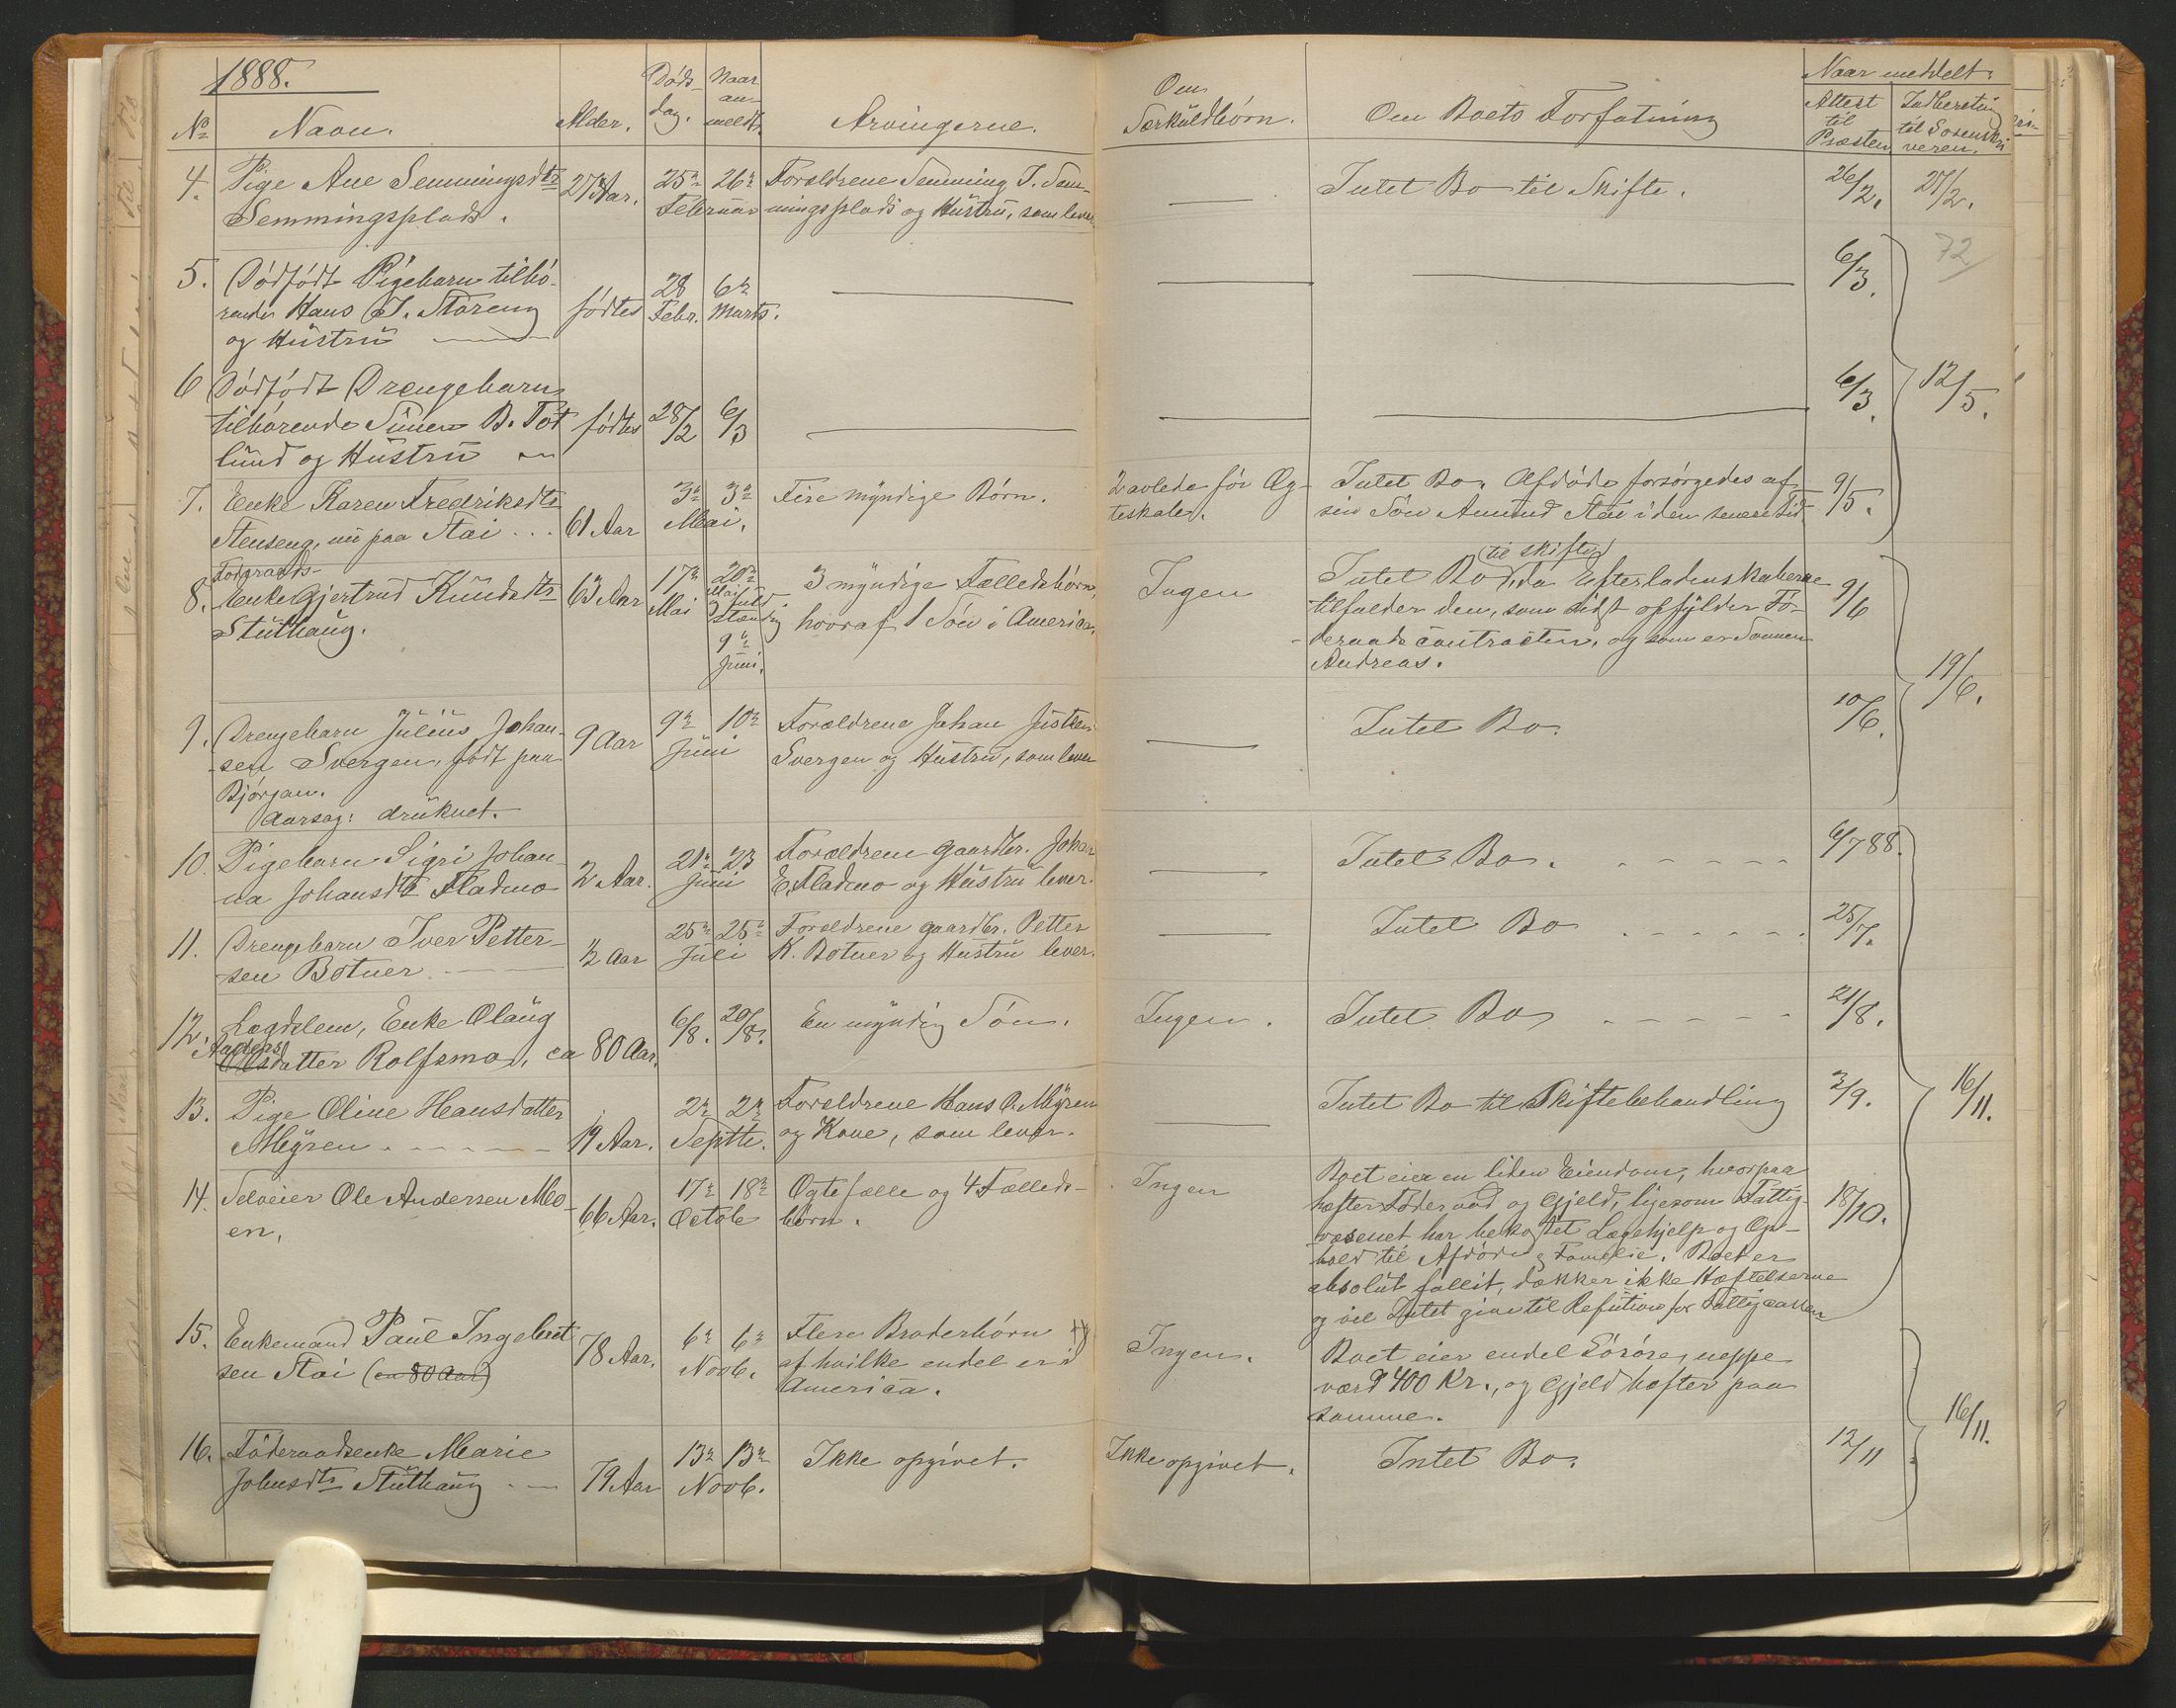 1888.
No Navn. Alder. Døds-dag. Naar an-meldt. Arvingerne. Om Særkuldbørn. Om Boets Forfatning Naar meddelt.
Attest til Præsten Indberetning til Sorenskriveren.
4. Pige Ane Semmingsdtr 27 Aar. 25de 26de Forældrene Semming J. Sem- — Intet Bo til Skifte. 26/2. 27/2.
Semmingsplads. Februar mingsplads og Hustru, som lever
72
5. Dødfødt Pigebarn tilhø- 6/3.
rende Hans J. Storeng fødtes 28 Febr. 6te Marts. — — —
og Hustru —
6 Dødfødt Drengebarn 6/3. 12/5.
tilhørende Simen B. Tot fødtes 28/2 6/3 — — —
lund og Hustru —
7. Enke Karen Fredriksdtr 3de 3de Fire myndige Børn. 2 avlede før Æg- Intet Bo. Afdøde forsørgedes af 9/5.
Stenseng, nu paa Stai . . . 61 Aar Mai. teskabet. sin Søn Amund Stai i den senere Tid.
8. Foderaads-
Enke Gjertrud Knudsdtr 63 Aar 17de Mai 20de Mai 3 myndige Fælledsbørn, Ingen Intet Bo til Skifte, da Efterladenskaberne 9/6
Stuthaug. fuld-stændig hvoraf 1 Søn i America. tilfalder den, som sidst opfylder Fø-
9de Juni. deraadscontracten, og som er Sønnen
Andreas.
19/6.
9. Drengebarn Julius Johan- 9 Aar 9de 10de Forældrene Johan Justen — Intet Bo. 10/6.
sen Svergen, født paa Juni Svergen og Hustru, som lever
Bjørgan.
Aarsag: druknet.
10. Pigebarn Sigri Johan- 2 Aar. 21de 23 Forældrene gaardbr. Johan — Intet Bo. - - - - - 6/7 88.
na Johansdtr Fladmo Juni E. Fladmo og Hustru lever.
11. Drengebarn Iver Petter- 1/2 Aar 25de 25de Forældrene gaardbr. Petter — Intet Bo - - - - - 25/7.
sen Botner — Juli K. Botner og Hustru lever.
12. Lægdslem, Enke Olaug 6/8. 20/8. En myndig Søn. Ingen. Intet Bo - - - - - 21/8.
Anders
Olsdatter Rolfsmo, ca 80 Aar.
13. Pige Oline Hansdatter 2de 2de Forældrene Hans O. Myren — Intet Bo til Skiftebehandling 3/9. 16/11.
Myren - - - - - 19 Aar. Septb. og Kone, som lever.
14. Selveier Ole Andersen Mo- 66 Aar. 17de 18de Ægtefælle og 4 Fælleds- Ingen Boet eier en liden Eiendom, hvorpaa 18/10.
en, Octob børn. hæfter Føderaad og Gjeld, ligesom Fattig-
væsenet har bekostet Lægehjelp og Op-
hold til Afdøde & Familie. Boet er
absolut fallit, dækker ikke Hæftelserne
og vil Intet give til Refution for Fattigcassen
15. Enkemand Paul Ingebret 78 Aar. 6te 6te Flere Broderbørn Ingen. Boet eier endel Løsøre, neppe
sen Stai (ca 80 Aar) Novb. af hvilke endel er i værd 400 Kr., og Gjeld hæfter paa
America. samme. 16/11.
16. Føderaadsenke Marie 79 Aar 13de 13de Ikke opgivet. Ikke opgivet. Intet Bo. 12/11
Johnsdtr Stuthaug - — Novb.